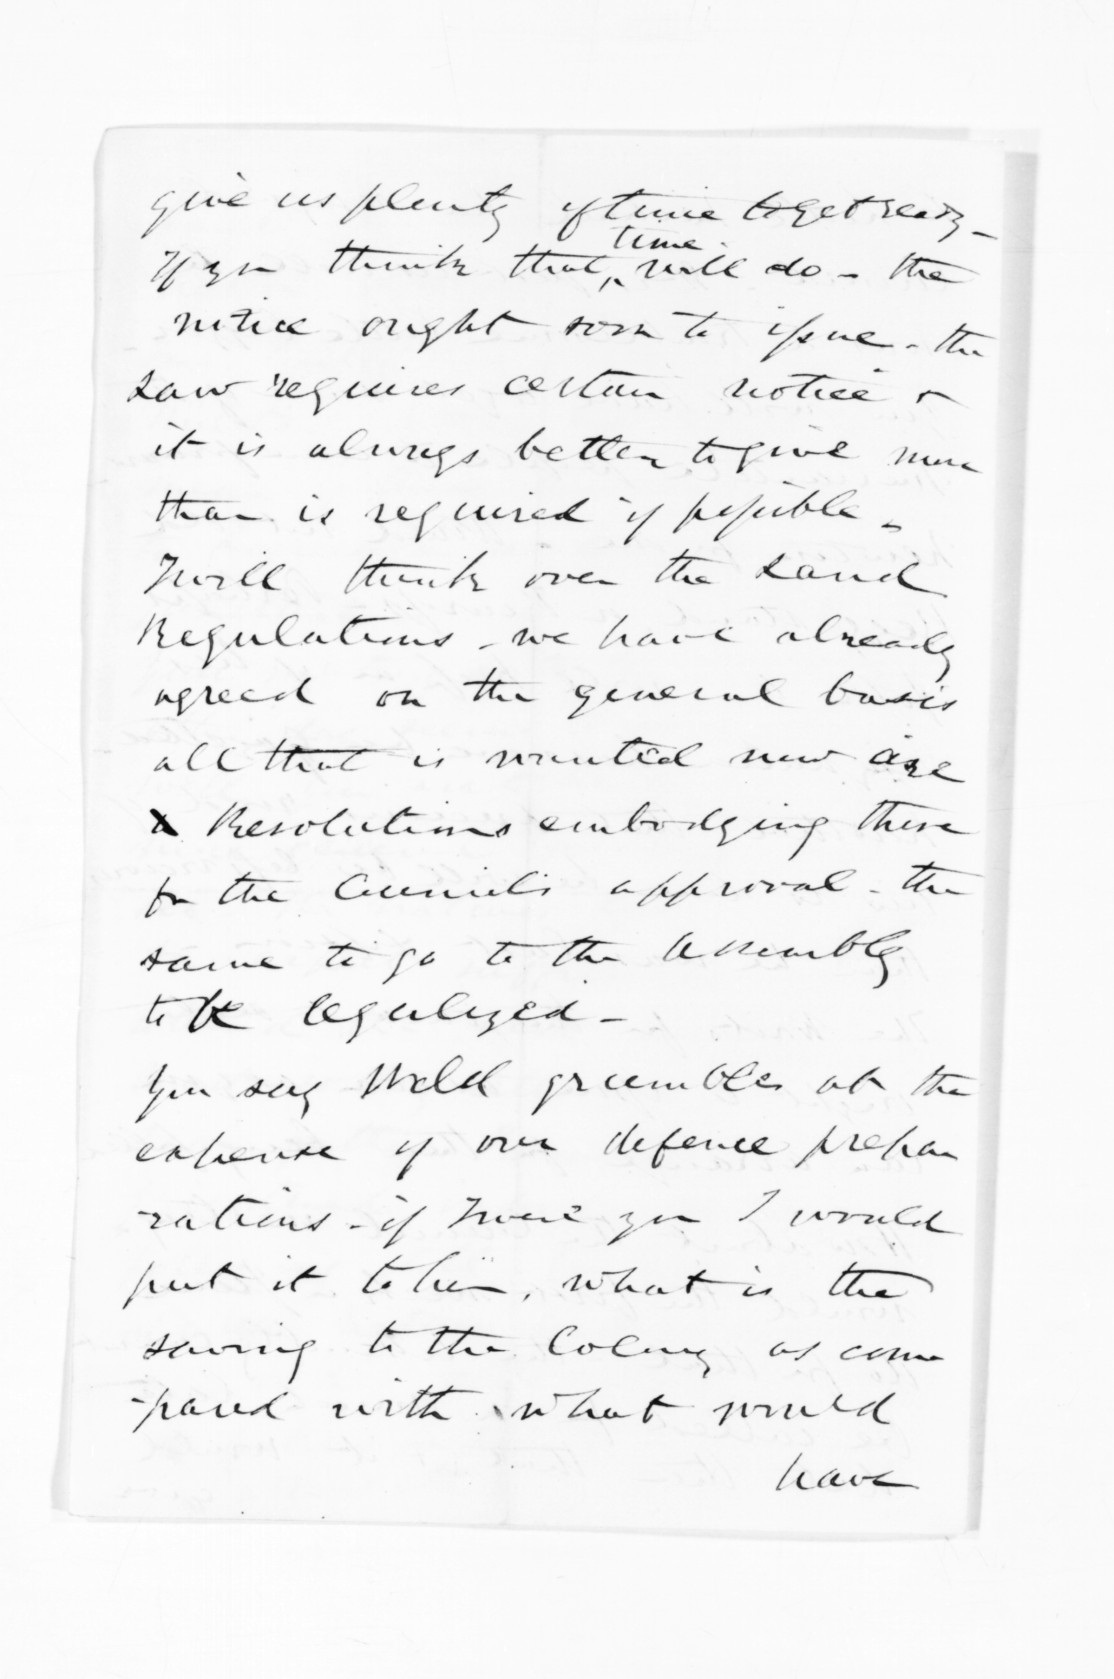 give us plenty of time to get ready -
If you think that time will do - the
notice ought soon to issue - the
Law requires certain notice &
it is always better to give more
than is required if possible -
I will think over the Land
Regulations - we have already
agreed on the general basis
all that is wanted now are
Resolutions embodying these
for the Council's approval - the
same to go to the Assembly
to be legalized -
You say Weld grumbles at the
expense of our defence prepa
-rations - if I were you I would
put it to him, what is the
saving to the Colony as com
-pared with what would
have